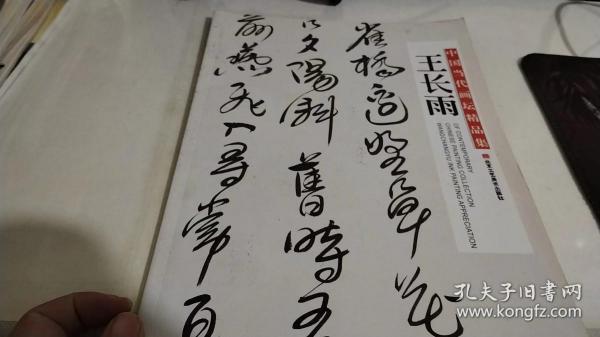 中国当代画坛精品集
王长雨
OF CONTEMPORARY
CHINESE PAINTING COLLECTION
WANGCHANGYU INK PAINTING APPRECIATION
雀橋邊野草花
口夕陽斜舊時王
前燕飛入尋常百
孔夫子旧书网
www.kongfz.com